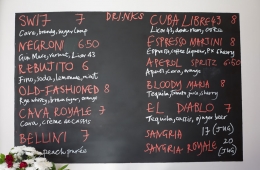 DRINKS
SW17 7
Cava, brandy, sugar lump
NEGRONI 6.50
Gin Mare, vermut, Licor 43
REBUJITO 6
Fino, soda, lemonade, mint
OLD-FASHIONED 8
Rye whisky, brown sugar, orange
CAVA ROYALE 7
Cava, crème de cassis
BELLINI 7
peach purée
CUBA LIBRE 43 8
Licor 43, dark rum, coke
ESPRESSO MARTINI 8
Espresso, coffee liqueur, PX Sherry
APEROL SPRITZ 6.50
Aperol, cava, orange
BLOODY MARIA 8
Tequila, tomato juice, sherry
EL DIABLO 7
Tequila, cassis, ginger beer
SANGRIA 17 (JUG)
SANGRIA ROYALE 20 (JUG)